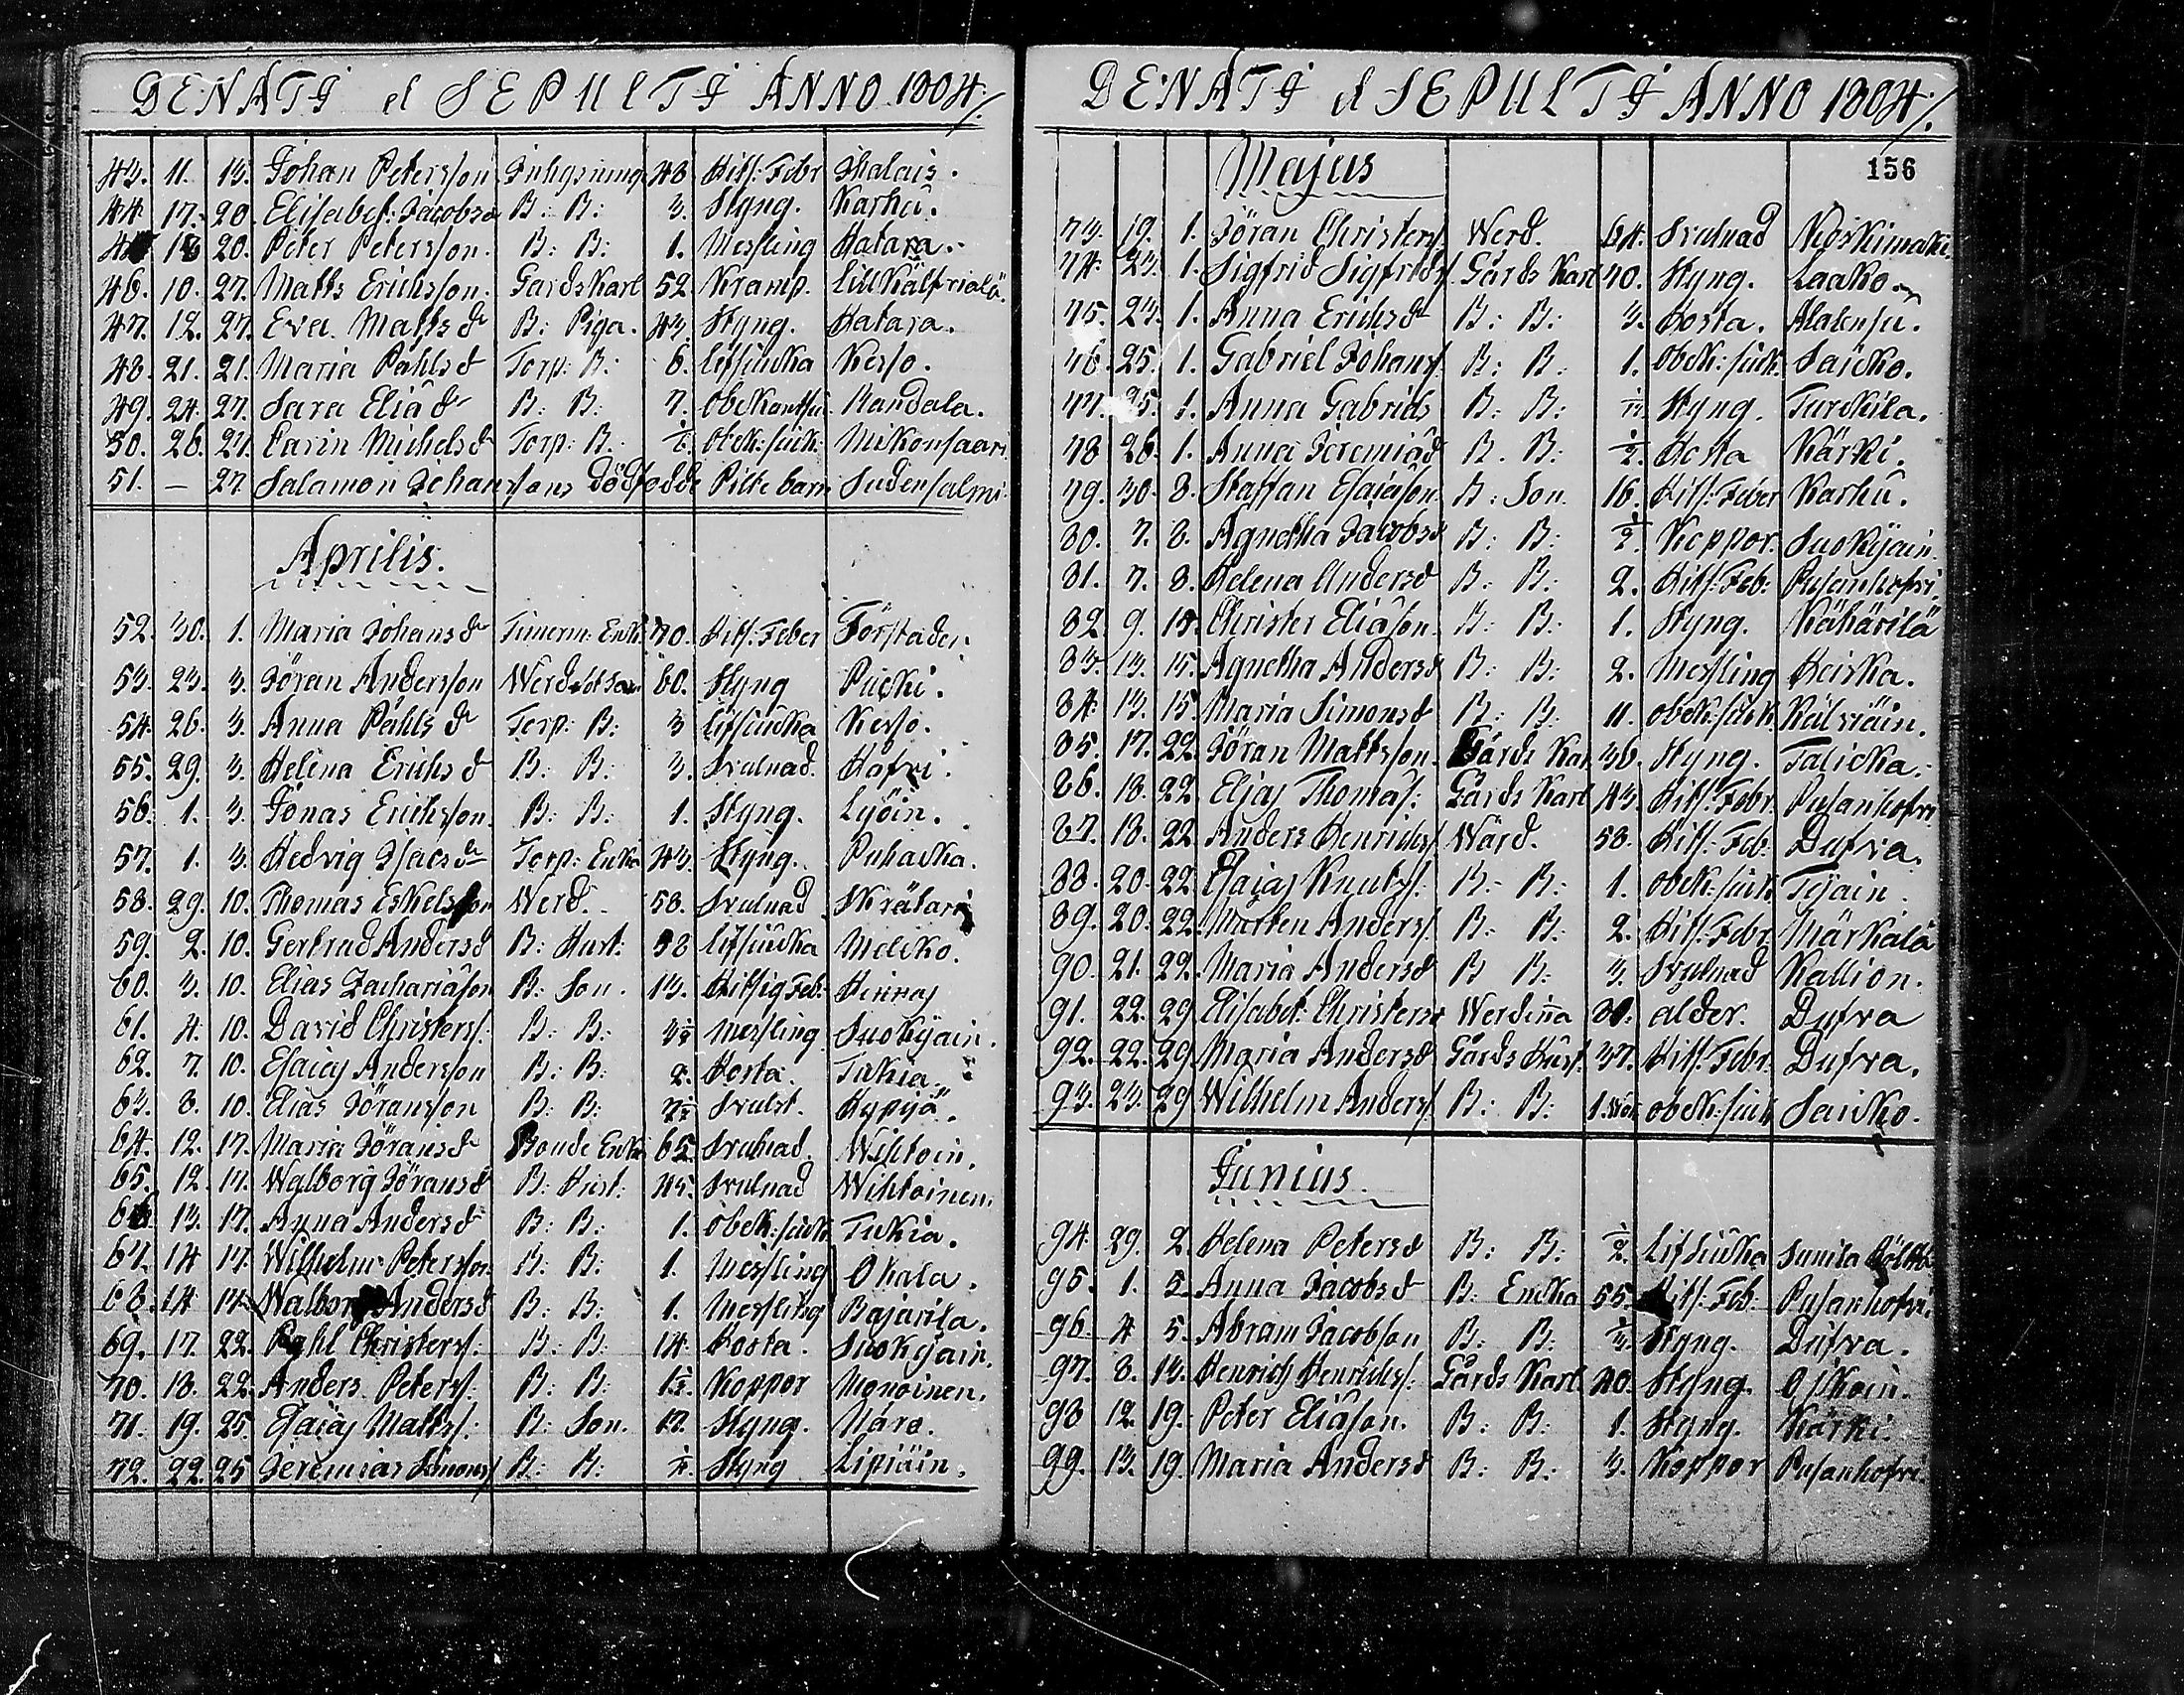 DENATI et SEPULTI ANNO 1804.
43. 11. 13. Johan Petersson Inhysning 48 Hits: Febr Thalais.
44 17. 20. Elisabet: Jacobsd B: B: 3. Styng. Karhu.
20. Peter Petersson. B: B: 1. Messling Hatara.
46. 10. 27. Matts Erichsson. Gårds Karl 52. Kramp.
47. 12. 27. Eva Mattsdr B: Piga. 43. Styng. Hatara.
48. 21. 21. Maria Påhlsd Torp: B: 6. litsiucka Kesso.
49. 24. 27. Sara Eliædr B: B: 7. Randala.
50. 26. 27. Carin Michelsd Torp: B: obek: siuk: Mikonsaari.
51. — 27. Salamon Johanssons dödfödde Piltebarn Sudensalmi.
Aprilis.
52. 30. 1. Maria Johansdr Timerm: Enk: 70. Hits: Feber Förstaden.
53. 23. 3. Jöran Andersson Werd 60. Styng Pucki.
54. 26. 3. Anna Påhlsdr Torp: B: 3 litsiucka Kesso.
55. 29. 3. Helena Erichsd B: B: 3. Svulnad. Håfvi.
56. 1. 3. Jonas Erichsson. B: B: 1. Styng. Lyöin.
57. 1. 3. Hedvig Isacsdr Torp: Enka 43. Styng. Puhacka.
58. 29. 10. Thomas Eskelsson Werd. 58. Svulnad Skrätari
59. 2. 10. Gertrud Andersd B: Hust: 58 litsiucka Melcko.
60. 3. 10. Elias Zachariæson B: Son. 13. Hitsig Feb: Hinnas
61. 4. 10. David Christers: B: B: Messling Suokyain.
62. 7. 10. Esaias Andersson B: B: 2. Hosta. Tukia.
63. 8. 10. Elias Jöransson B: B: Svulst. Hypyä.
64. 12. 17. Maria Jöransd Bonde Enka 65 Svulnad. Wihtoin.
65. 12. 17. Walborg Jöransd B: Hust: 45. Svulnad Wihtoinen.
66. 13. 17. Anna Andersd B: B: 1. obek: siuk. Tukia.
67. 14 17. Wilhelm Petersson B: B: 1. Messling Okala.
68. 14 17. Walborg Andersd B: B: 1. Messling Bajarila.
69. 17. 22. Påhl Christers: B: B: 14. Hosta. Suokyain.
70. 18. 22. Anders Peters: B: B: Koppor Monoinen.
71. 19. 25. Esaias Matts: B: Son. 17. Styng. Nara.
72. 22. 25 Jeremias Simons B: B: Styng Lipiäin.
DENATI et SEPULTI ANNO 1804.
156
Majus
73. 19. 1. Jöran Christers: Werd. 64. Svulnad Koskimaki.
74. 23. 1. Sigfrid Sigfrids: Gårds Karl 70. Styng. Laako.
75. 23. 1. Anna Erichsdr B: B: 3. Hosta. Alalensu.
76. 25. 1. Gabriel Johans: B: B: 1. obek: siuk. Saicko.
77. 25. 1. Anna Gabriels B: B: Styng. Turckila.
78 26. 1. Anna Jeremiæd B. B: 1/2. Hosta Kärki.
79. 30. 8. Staffan Esaiæson. B: Son. 16. Hits: Feber Karhu.
80. 7. 8. Agnetha Jacobsd B: B: 1/2. Koppor. Suokyain.
81. 7. 8. Helena Andersd B: B: 2. Hits: Feb: Pusanhofvi.
82. 9. 15. Christer Eliæson. B: B: 1. Styng. Kähärilä
83. 13. 15. Agnetha Andersd B: B: 2. Messling Heiska.
84. 13. 15. Maria Simonsd B: B: 11. obek: siuk. Kälviäin.
85. 17. 22. Jöran Mattsson. Gårds Kar 36. Styng. Talicka.
86. 18. 22 Elias Thomas: Gårds Karl 43. Hits: Febr. Pusanhofvi.
87. 18. 22 Anders Henrichs: Wärd. 58. Hits: Feb: Dufva.
88. 20. 22 Esaias Knuts: B: B: 1. obek: siuk Tyäin.
89. 20. 22. Morten Anders: B: B: 2. Hits: Febr. Märkälä
90. 21. 22. Maria Andersd B B: 3. Svulnad Kallion.
91. 22. 29 Elisabet: Christersd Werdinna 80. ålder. Dufva
92. 22. 29. Maria Andersd Gårds Hust: 37. Hits: Febr. Dufva.
93. 23. 29 Wilhelm Anders: B: B: 1. Wek obek: siuk Saicko.
Junius.
94. 29. 2. Helena Petersd B: B: 1/2. Litsiucka Sunila
95. 1. 5. Anna Jacobsd B: Encka 55. Hits: Feb: Pusanhofvi.
96. 4 5. Abram Jacobson B: B: Styng. Dufva.
97. 8. 13. Henrich Henrichs: Gårds Karl 40. Styng. Oikoin.
98 12. 19. Peter Eliæson. B: B: 1. Styng. Kärki.
99. 13. 19. Maria Andersd B: B: 3. Koppor Pusanhofvi